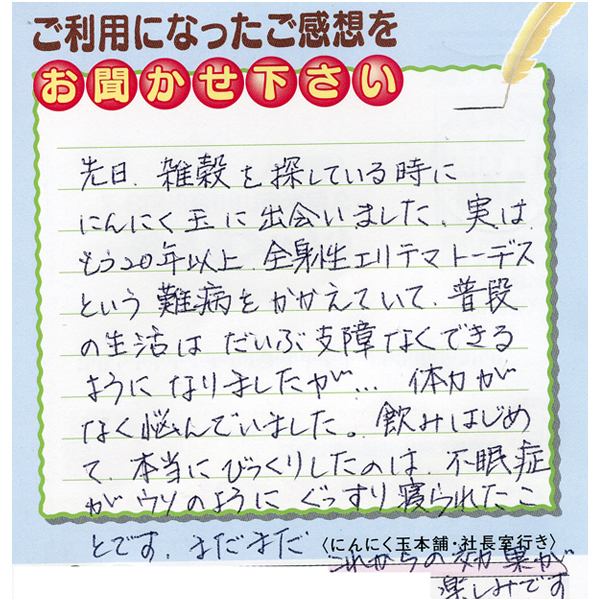 ご利用になったご感想を
お聞かせ下さい
先日、雑穀を探している時に
にんにく玉に出会いました。実は
もう20年以上、全身性エリテマトーデス
という難病をかかえていて、普段
の生活はだいぶ支障なくできる
ようになりましたが… 体力が
なく悩んでいました。飲みはじめ
て、本当にびっくりしたのは、不眠症
がウソのようにぐっすり寝られたこ
とです。まだまだ
〈にんにく玉本舗・社長室行き〉
これからの効果が
楽しみです